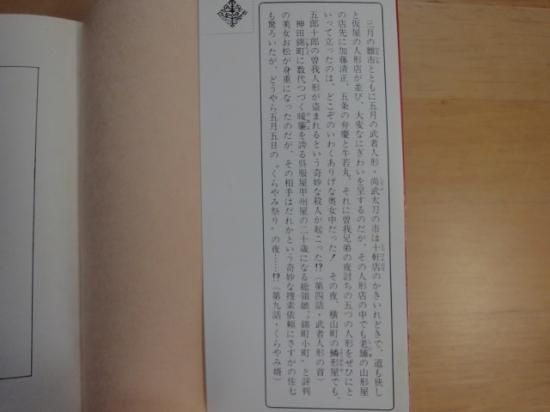 三月の雛市とともに五月の武者人形・尚武太刀の市は十軒店のかきいれどきで、道も狭し
と仮屋の人形店が並び、大変なにぎわいを呈するのだが、その人形店の中でも老舗の山形屋
の店先に加藤清正、五条の弁慶と牛若丸、それに曽我兄弟の夜討ちの五つの人形をぜひにと
いって立ったのは、どこぞのいわくありげな奥女中だった！その夜、横山町の鱗形屋でも、
五郎十郎の曽我人形が盗まれるという奇妙な殺人が起こった!?（第四話・武者人形の首）
神田錦町に数代つづく暖簾を誇る呉服屋甲州屋の二十歳になる総領娘〝錦町小町〟と評判
の美女お松が身重になったのだが、その相手はだれかという奇妙な捜索依頼にさすがの佐七
も驚ろいたが、どうやら五月五日の〝くらやみ祭り〟の夜……!?（第九話・くらやみ婿）